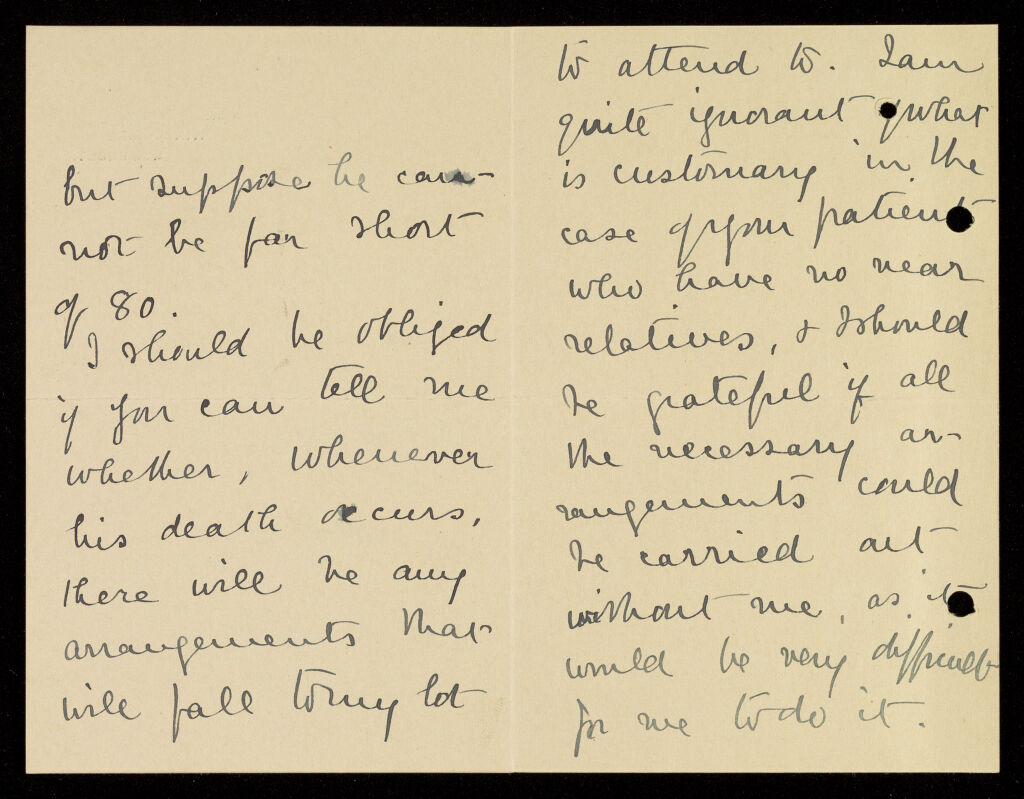 but suppose he can-
not be far short
of 80.
I should be obliged
if you can tell me
whether, whenever
his death occurs,
there will be any
arrangements that
will fall to my lot
to attend to. I am
quite ignorant of what
is customary in the
case of your patients
who have no near
relatives, & I should
be grateful if all
the necessary ar-
rangements could
be carried out
without me, as it
would be very difficult
for me to do it.